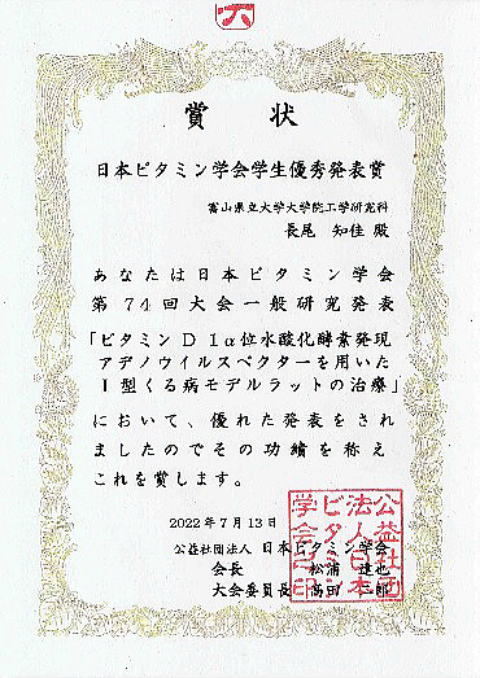 賞状
日本ビタミン学会学生優秀発表賞
富山県立大学大学院工学研究科
長尾 知佳 殿
あなたは日本ビタミン学会
第74回大会一般研究発表
「ビタミン D 1α位水酸化酵素発現
アデノウイルスベクターを用いた
Ⅰ型くる病モデルラットの治療」
において、優れた発表をされ
ましたのでその功績を称え
これを賞します。
2022年7月13日
公益社団法人 日本ビタミン学会
会長 松浦 達也
大会委員長 髙田 二郎
公益社団
法人日本
ビタミン
学会之印